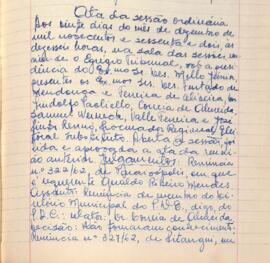 Ata da sessão ordinária
Aos vinte dias do mês de dezembro de
mil novecentos e sessenta e dois, às
dezesseis horas, na sala das sessões reú-
niu-se o Egrégio Tribunal, sob a presi-
dência do Exmo. Sr. Des. Mello Júnior
presentes os Exmos. Srs. Des. Furtado de
Mendonça e Pereira de Oliveira, Drs.
Judolfo Paoliello, Correia de Almeida,
Samuel Werneck, Valle Ferreira e José
Procurador Regional Elei-
toral Substituto. Aberta a sessão, foi
lida e aprovada a ata da reuni-
ão anterior. Julgamentos: Renúncia
nº 322/62, de em que
é requerente Ribeiro Mendes.
Assunto: Renúncia de membro do Di-
retório Municipal do P.S.D., digo, do
P.D.C.: relator: Dr. Correia de Almeida
Decisão: Não tomaram conhecimento.
Renúncia nº 327/62, de Pitangui, em